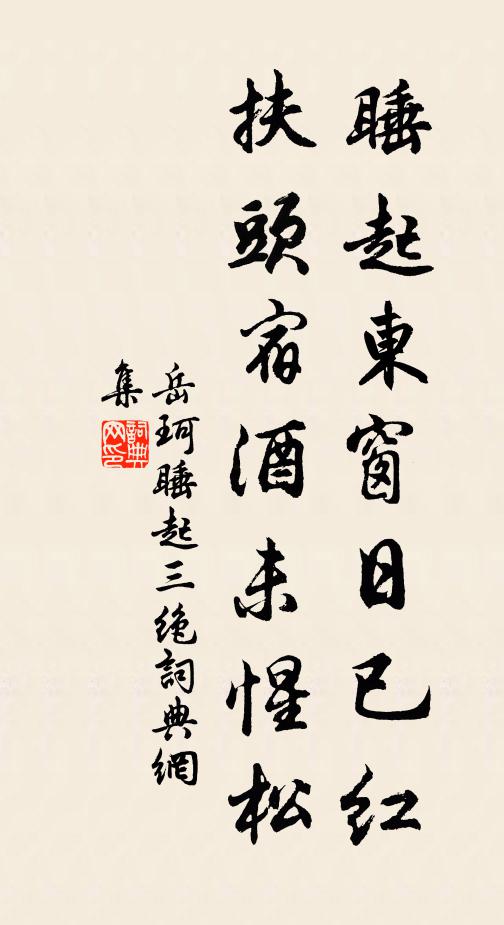 睡起東窗日已紅
扶頭宿酒未惺松
岳珂睡起三絶詞典網
集
詞典網印